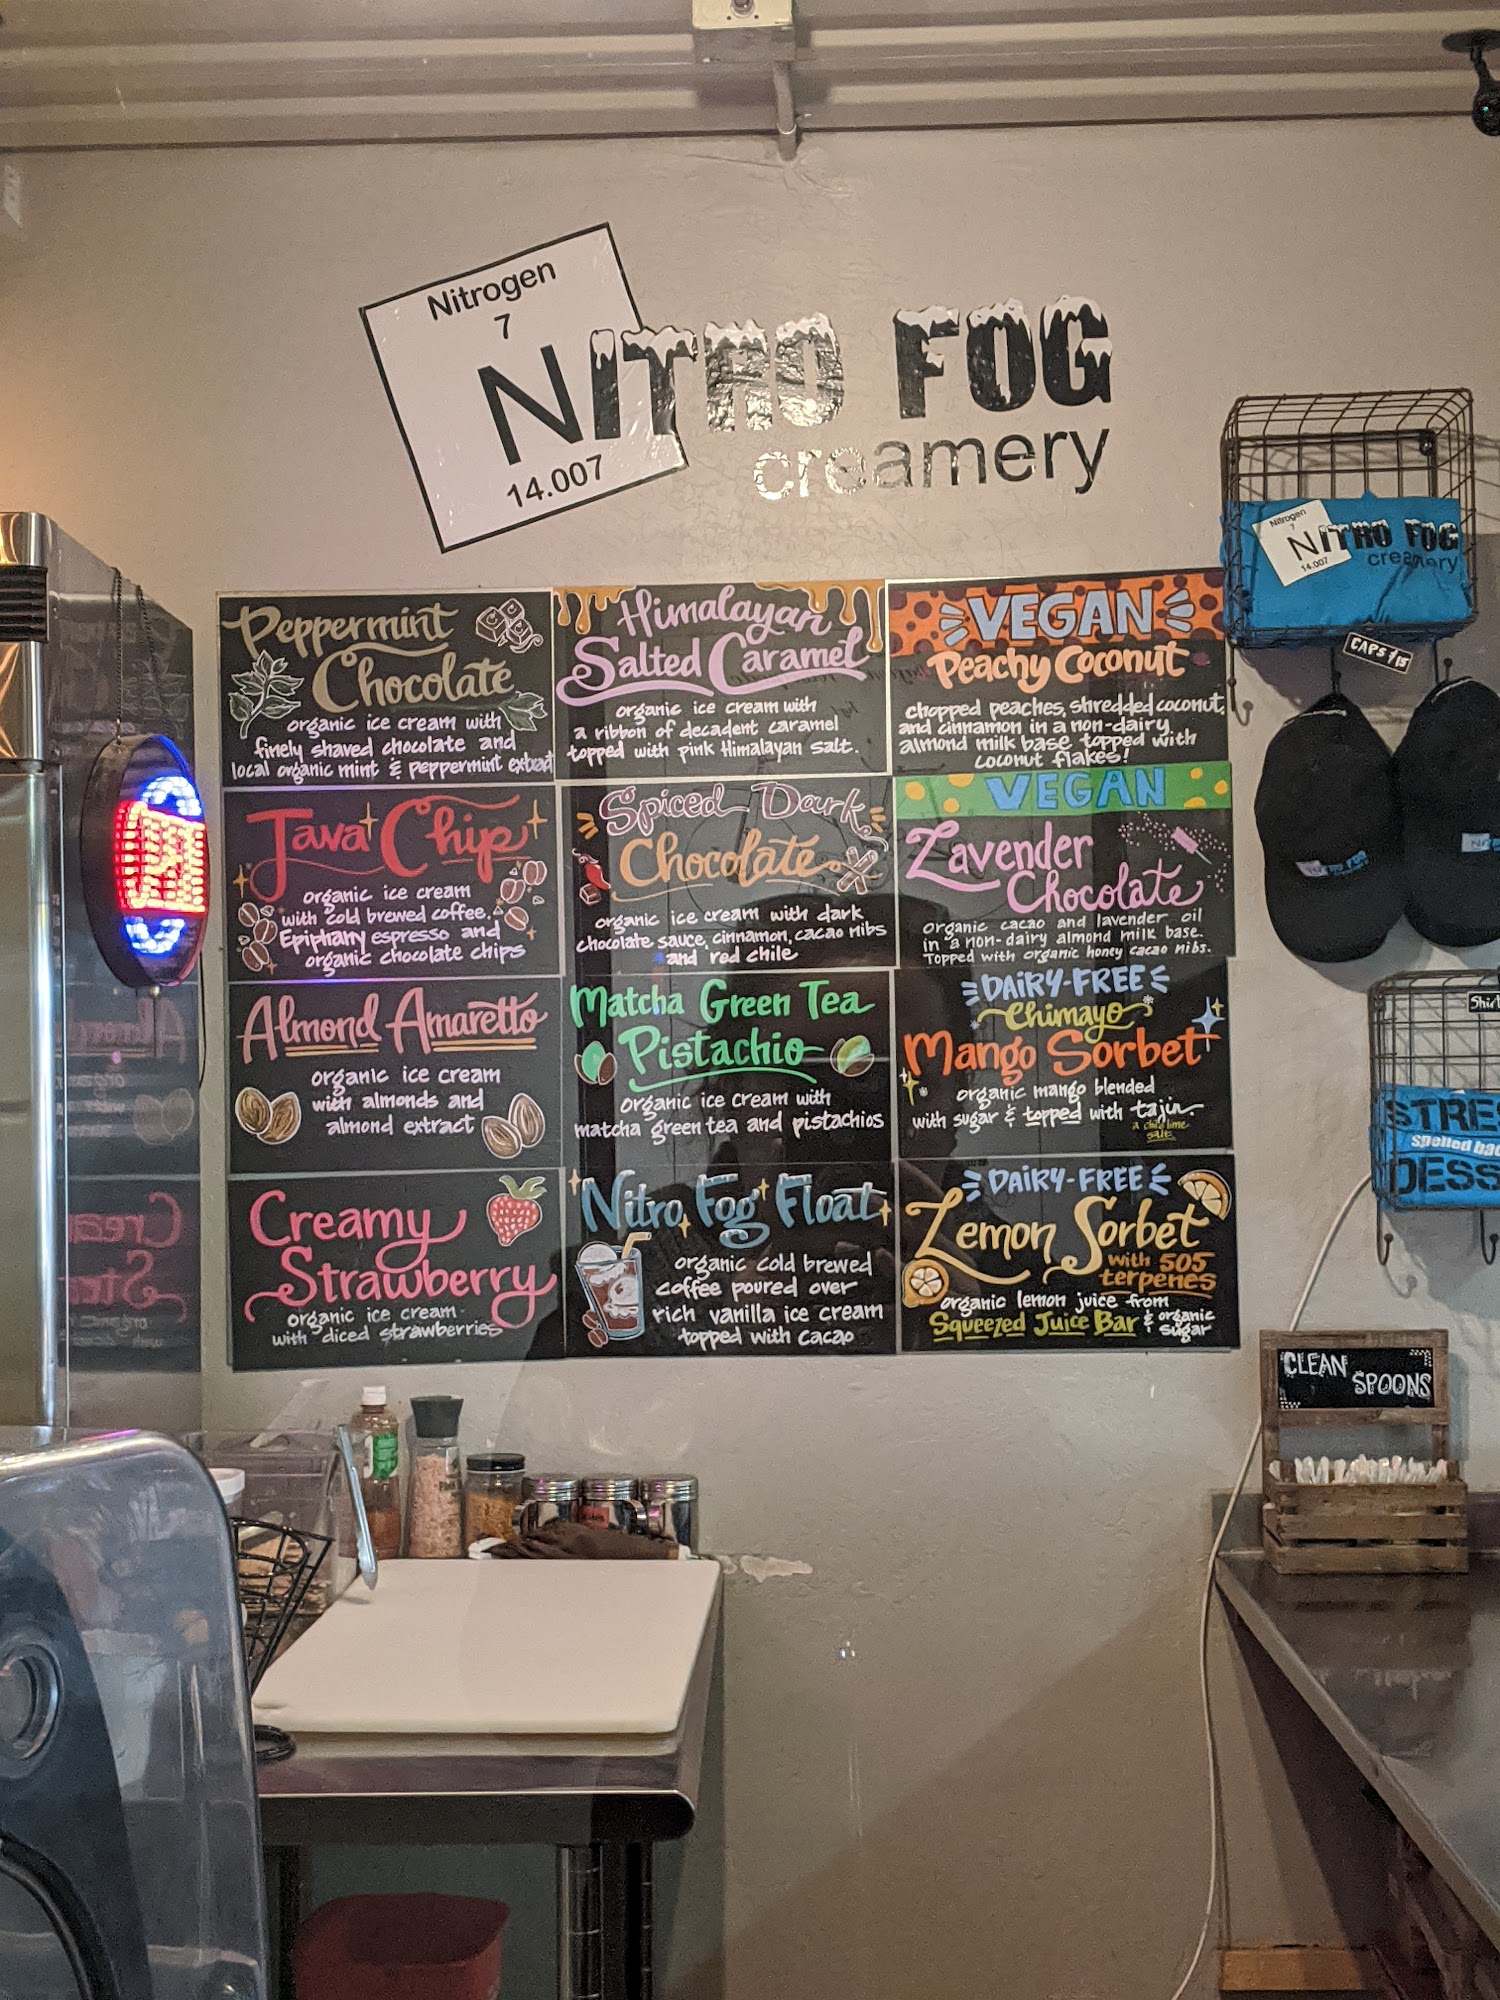 Nitrogen
7
NITRO FOG
14.007
creamery
Peppermint
Chocolate
organic ice cream with
finely shaved chocolate and
local organic mint & peppermint extract
Himalayan
Salted Caramel
organic ice cream with
a ribbon of decadent caramel
topped with pink Himalayan salt.
VEGAN
Peachy Coconut
chopped peaches, shredded coconut,
and cinnamon in a non-dairy
almond milk base topped with
coconut flakes!
Java Chip
organic ice cream
with cold brewed coffee,
Epiphany espresso and
organic chocolate chips
Spiced Dark
Chocolate
organic ice cream with dark
chocolate sauce, cinnamon, cacao nibs
and red chile
VEGAN
Lavender
Chocolate
organic cacao and lavender oil
in a non-dairy almond milk base.
Topped with organic honey cacao nibs.
Almond Amaretto
organic ice cream
with almonds and
almond extract
Matcha Green Tea
Pistachio
organic ice cream with
matcha green tea and pistachios
DAIRY-FREE
Chimayo
Mango Sorbet
organic mango blended
with sugar & topped with tajin.
a chili lime
salt
Creamy
Strawberry
organic ice cream
with diced strawberries
Nitro Fog Float
organic cold brewed
coffee poured over
rich vanilla ice cream
topped with cacao
DAIRY-FREE
Lemon Sorbet
with 505
terpenes
organic lemon juice from
Squeezed Juice Bar & organic
sugar
Nitrogen
7
NITRO FOG
14.007
creamery
CAPS $15
Shirt
STRES
Spelled bac
DESS
CLEAN
SPOONS